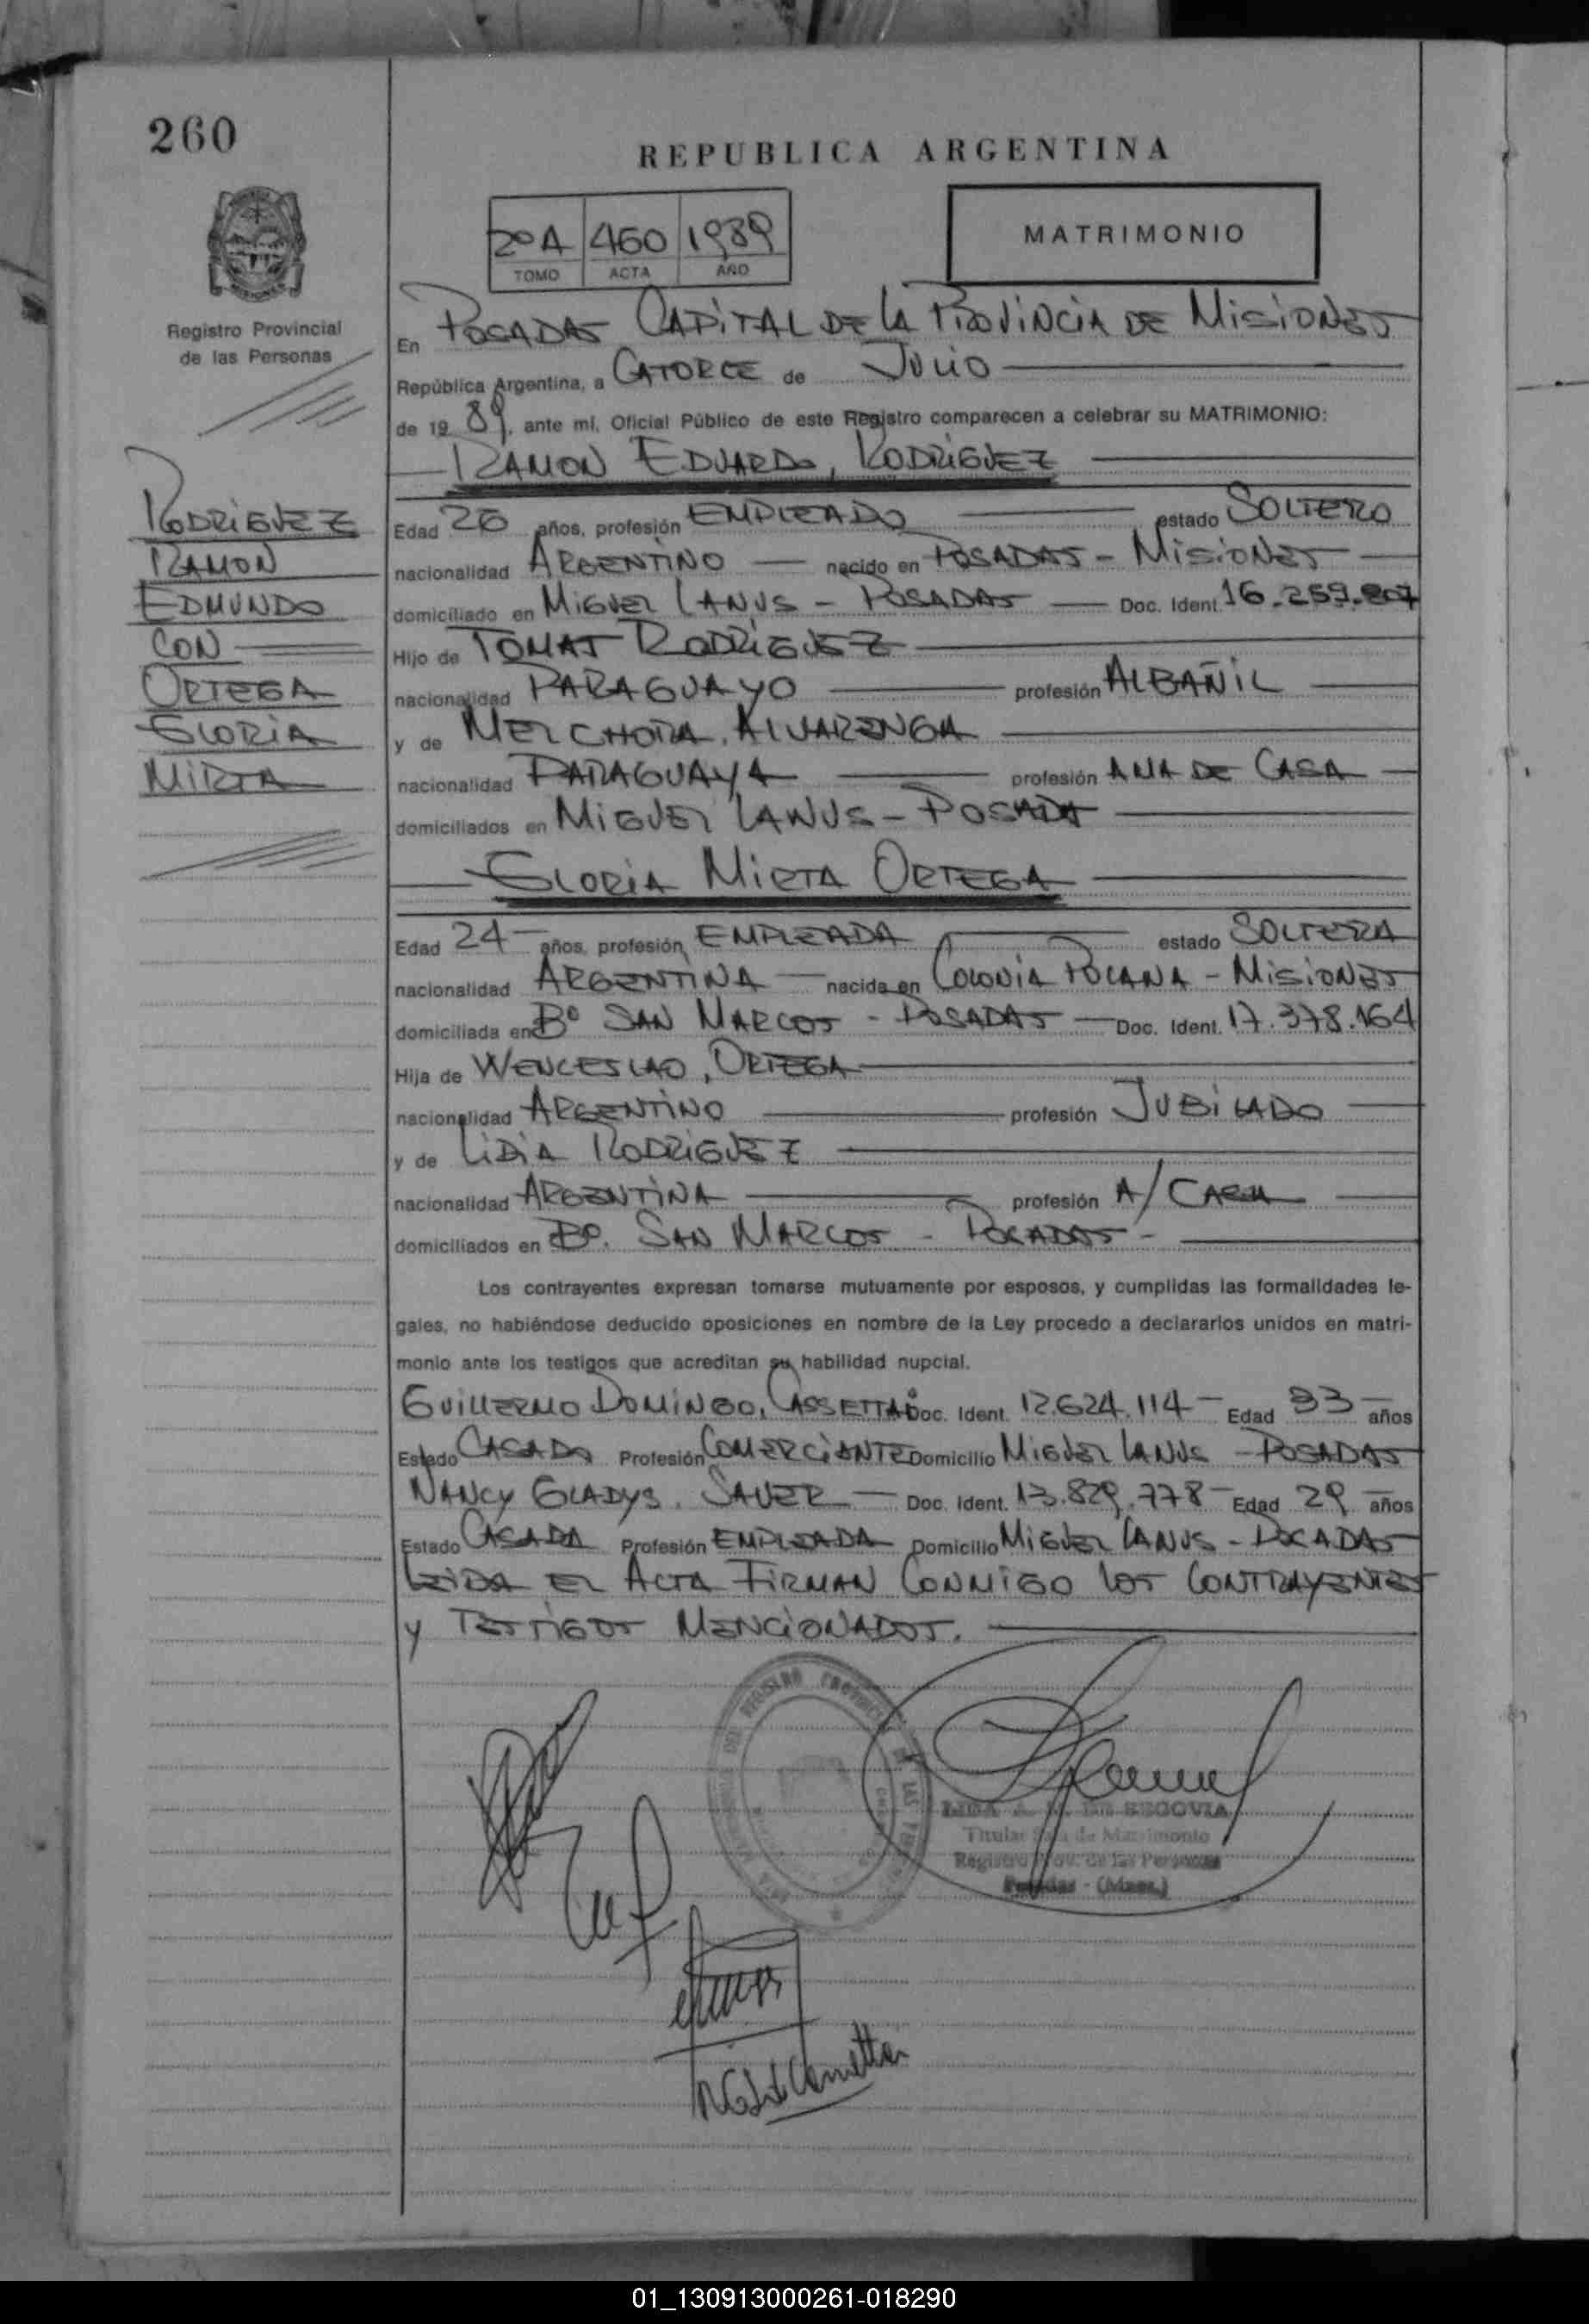 260
REPUBLICA ARGENTINA
2º A 460 1989
TOMO ACTA AÑO
MATRIMONIO
Registro Provincial
de las Personas
RODRIGUEZ
RAMON
EDMUNDO
CON
ORTEGA
GLORIA
MIRTA
En POSADAS CAPITAL DE LA PROVINCIA DE MISIONES
República Argentina, a CATORCE de JULIO
de 19 89, ante mí, Oficial Público de este Registro comparecen a celebrar su MATRIMONIO:
RAMON EDUARDO, RODRIGUEZ
Edad 26 años, profesión EMPLEADO estado SOLTERO
nacionalidad ARGENTINO — nacido en POSADAS - MISIONES
domiciliado en MIGUEL LANUS - POSADAS — Doc. Ident. 16.259.807
Hijo de TOMAS RODRIGUEZ
nacionalidad PARAGUAYO profesión ALBAÑIL
y de MELCHORA, ALVARENGA
nacionalidad PARAGUAYA profesión AMA DE CASA
domiciliados en MIGUEL LANUS - POSADAS
GLORIA MIRTA ORTEGA
Edad 24 años, profesión EMPLEADA estado SOLTERA
nacionalidad ARGENTINA — nacida en COLONIA POLANA - MISIONES
domiciliada en Bº SAN MARCOS - POSADAS — Doc. Ident. 17.378.164
Hija de WENCESLAO, ORTEGA
nacionalidad ARGENTINO profesión JUBILADO
y de LIDIA RODRIGUEZ
nacionalidad ARGENTINA profesión A/CASA
domiciliados en Bº. SAN MARCOS - POSADAS -
Los contrayentes expresan tomarse mutuamente por esposos, y cumplidas las formalidades le-
gales, no habiéndose deducido oposiciones en nombre de la Ley procedo a declararlos unidos en matri-
monio ante los testigos que acreditan su habilidad nupcial.
GUILLERMO DOMINGO, CASSETTA Doc. Ident. 12.624.114 - Edad 33 años
Estado CASADO Profesión COMERCIANTE Domicilio MIGUEL LANUS - POSADAS
NANCY GLADYS, SAUER — Doc. Ident. 13.829.778 - Edad 29 años
Estado CASADA Profesión EMPLEADA Domicilio MIGUEL LANUS - POSADAS
LEIDA EL ACTA FIRMAN CONMIGO LOS CONTRAYENTES
y TESTIGOS MENCIONADOS.
DE SEGOVIA
Titular Sala de Matrimonio
Registro Prov. de las Personas
Posadas - (Mnes.)
01_130913000261-018290